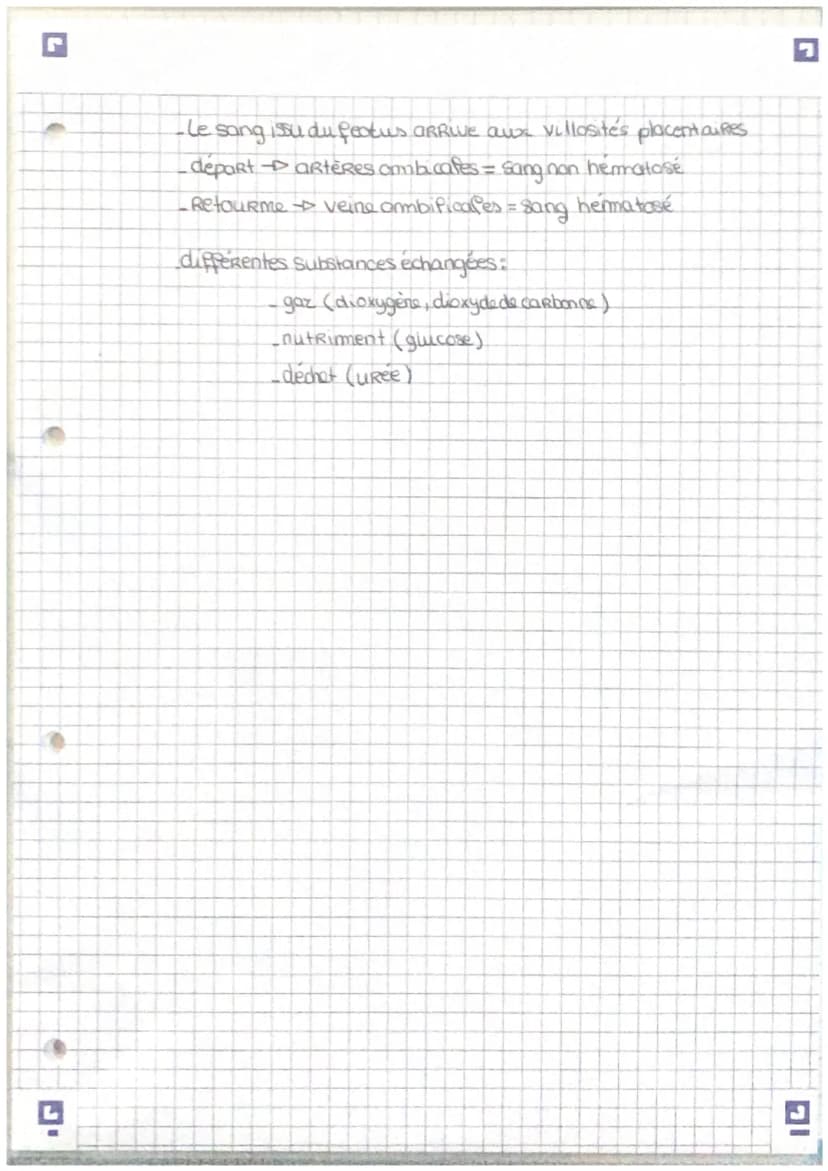 - Le sang issu du foetus arrive aux villosités placentaires
- départ → artères ombicales = sang non hématosé
- Retourme → veine ombilicales = sang hématosé
differentes substances échangées :
- gaz (dioxygène, dioxyde de carbonne)
- nutriment (glucose)
- déchet (urée)